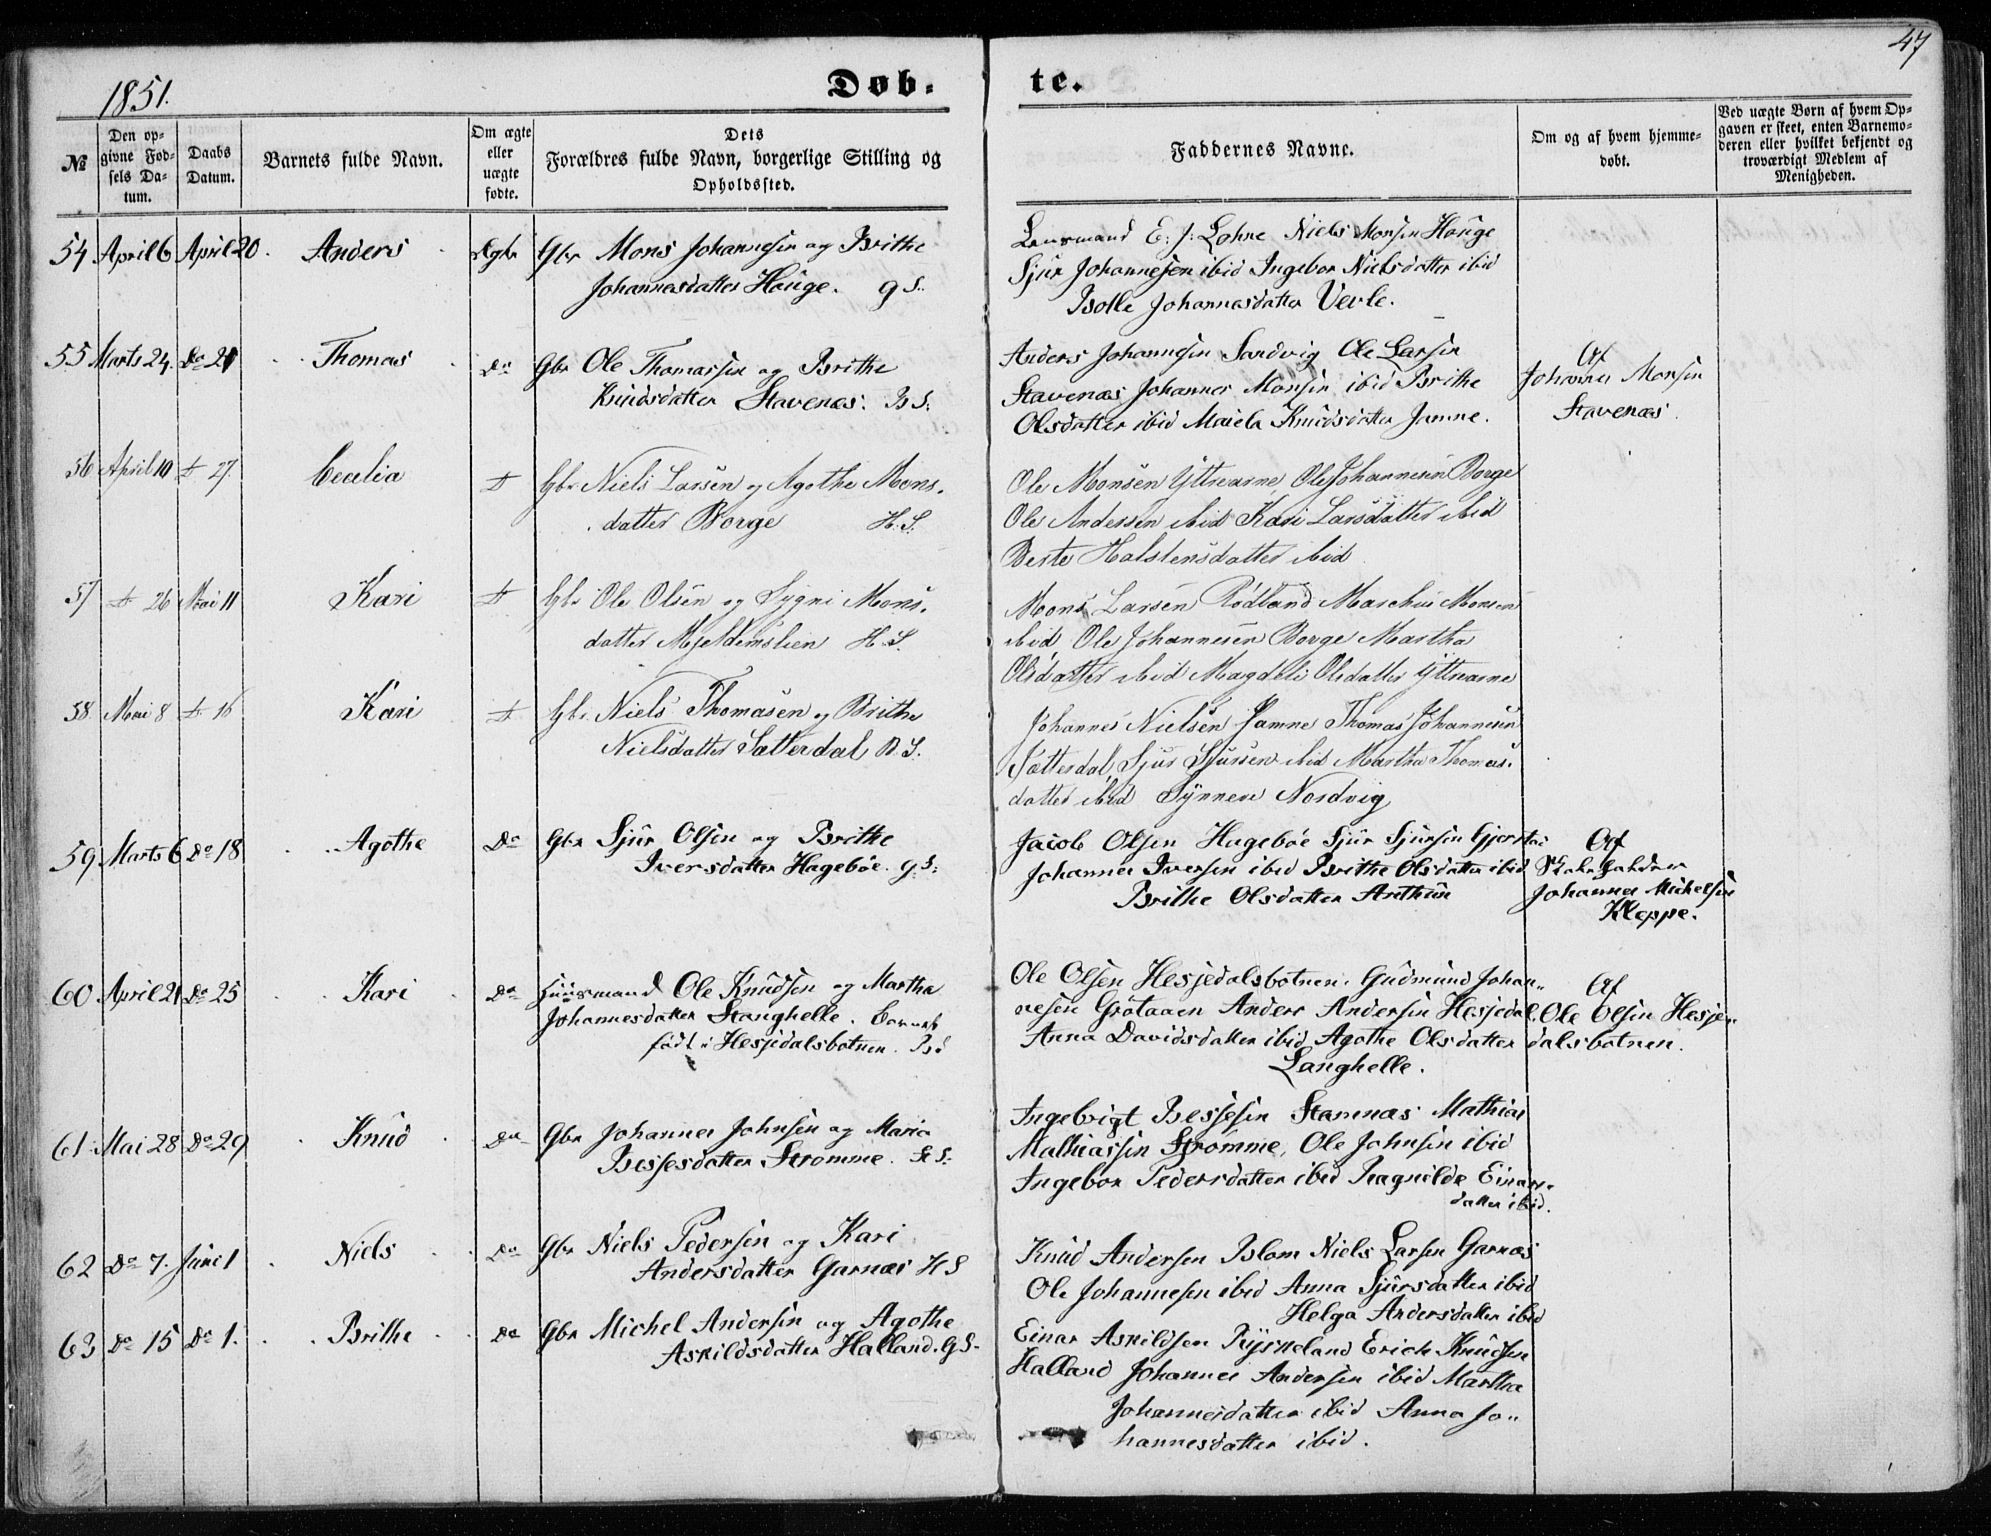 47
1851.
Døb-te.
№
Den op-
givne Fød-
sels Da-
tum.
Daabs
Datum.
Barnets fulde Navn.
Om ægte
eller
uægte
fødte.
Dets
Forældres fulde Navn, borgerlige Stilling og
Opholdssted.
Faddernes Navne.
Om og af hvem hjemme-
døbt.
Ved uægte Børn af hvem Op-
gaven er skeet, enten Barnemo-
deren eller hvilket bekjendt og
troværdigt Medlem af
Menigheden.
54 April 6 April 20 Anders Ægte Gbr Mons Johannesen og Brithe
Johannesdatter Houge. g S.
Lensmand E: J: Lohne Niels Monsen Houge
Sjur Johannesen ibid Ingebor Nielsdatter ibid
Bolle Johannesdatter Verle.
55 Marts 24. Do 21 Thomas Do Gbr Ole Thomassen og Brithe
Knudsdatter Stavenæs. B S:
Anders Johannesen Sandvig Ole Larsen
Stavenæs Johannes Monsen ibid Brithe
Olsdatter ibid Maiela Knudsdatter Jamne.
Af
Johannes Monsen
Stavenæs
56 April 10 D 27. Cecelia D Gbr Niels Larsen og Agothe Mons-
datter Borge H. S.
Ole Monsen Yttrearne Ole Johannesen Borge
Ole Andersen ibid Kari Larsdatter ibid
Berte Halstensdatter ibid
57 D 26 Mai 11 Kari D Gbr Ole Olsen og Sygni Mons-
datter Mjeldemslien H. S.
Mons Larsen Rødland Maschus Monsen
ibid Ole Johannesen Borge Martha
Olsdatter ibid Magdeli Olsdatter Yttrearne
58 Mai 8 D 16 Kari D Gbr Niels Thomasen og Brithe
Nielsdatter Sætterdal B. S.
Johannes Nielsen Jamne Thomas Johannesen
Sætterdal Sjur Sjursen ibid Martha Thomas-
datter ibid Synneve Nordvig
59 Marts 6 Do 18 Agothe Do Gbr Sjur Olsen og Brithe
Iversdatter Hagebøe. g. S:
Jacob Olsen Hagebøe Sjur Sjursen Gjerstad
Johannes Iversen ibid Brithe Olsdatter ibid
Brithe Olsdatter Arthun
Af
Johannes Michelsen
Kleppe.
60 April 21 Do 25 Kari Do Huusmand Ole Knudsen og Martha
Johannesdatter Stanghelle. Barnet
født i Hesjedalsbotnen. B S
Ole Olsen Hesjedalsbotnen. Gudmund Johan-
nesen Grøtaaen Anders Andersen Hesjedal
Anna Davidsdatter ibid Agothe Olsdatter
Langhelle.
Af
Ole Olsen Hesje-
dalsbotnen.
61. Mai 28 Do 29 Knud Do Gbr Johannes Johnsen og Maria
Bessesdatter Strømme. St S:
Ingebrigt Bessesen Stamnæs Mathias
Mathiassen Strømme, Ole Johnsen ibid
Ingebor Pedersdatter ibid Ragnilde Einars-
datter ibid.
62 Do 7. Juni 1 Niels Do Gbr Niels Pedersen og Kari
Andersdatter Garnæs H S
Knud Andersen Blom Niels Larsen Garnæs
Ole Johannesen ibid Anna Sjursdatter ibid
Helga Andersdatter ibid
63 Do 15 Do 1. Brithe Do Gbr Michel Andersen og Agothe
Askildsdatter Halland. G S.
Einar Askildsen Rysneland Erich Knudsen
Halland Johannes Andersen ibid Martha
Johannesdatter ibid Anna Jo-
hannesdatter ibid.